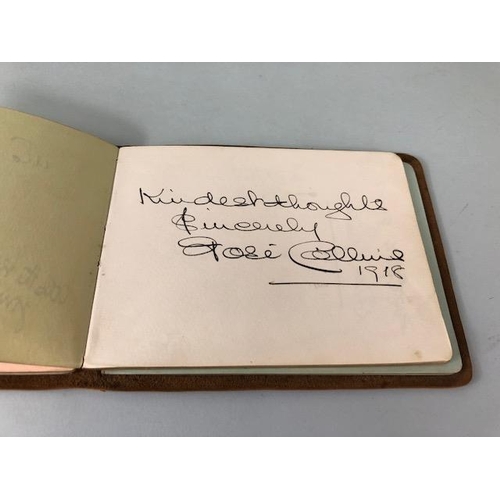 Kindest thoughts
Sincerely
José Collins
1918